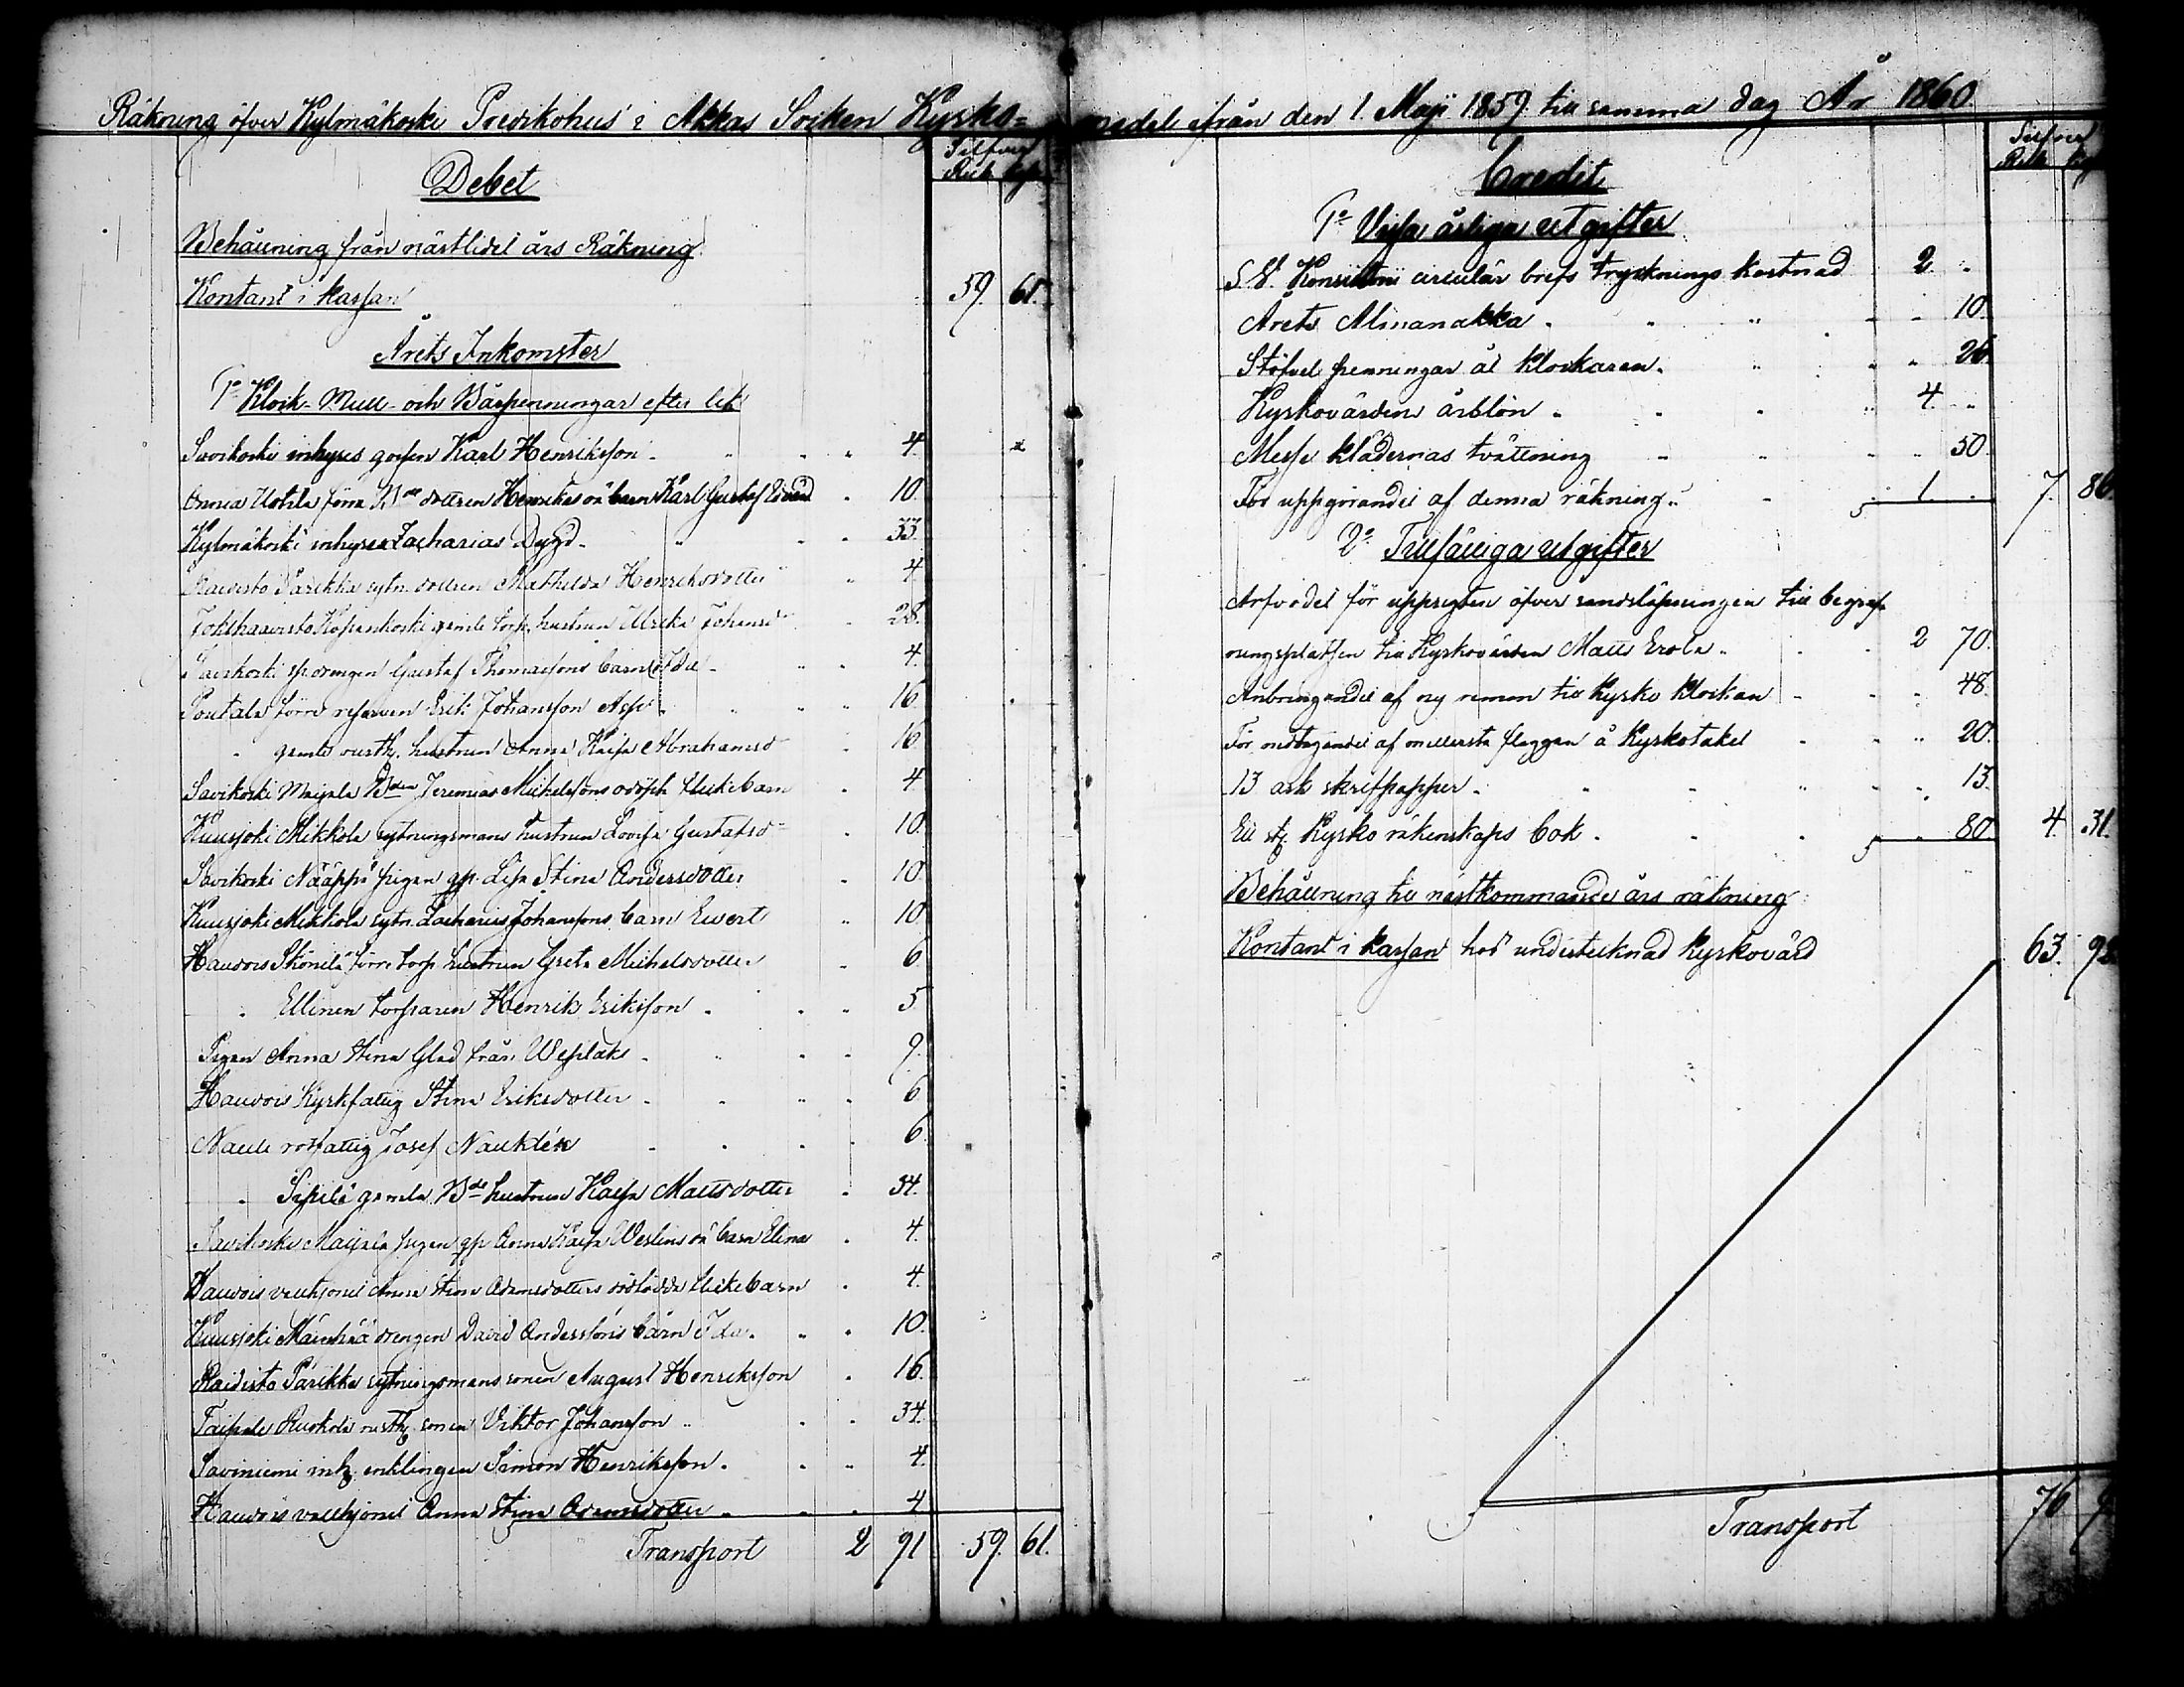 Räkning öfver Kylmäkoski Predikohus i Akkas Socken Kyrko=
Silfver
Rub. kop.
Debet
Behållning från nästlidet års Räkning.
Kontant i kassan 59. 61.
Årets Inkomster
1o Klock- Mull- och Bårpenningar efter lik
Savikoski inhyses gossen Karl Henriksson 4.
Annia Uotila förra dottren Henrikas oä barn Karl Gustaf Edvard 10.
Kylmäkoski inhyses Zacharias Dygd 33.
Raivisto Pärikkä sytn. dottren Mathilda Henriksdotter 4
gamle torp. hustrun Ulrika Johansd 28.
Savikoski sp. drengen Gustaf Thomassons barn Ida 4.
Pontala förre reserven Erik Johansson Asp 16
" gamle rusth. hustrun Anna Kaisa Abrahamsd 16
Savikoski Maijala Jeremias Mickelssons odöpt flickebarn 4
Kuusjoki Mikkola sytningsmans hustrun Lovisa Gustafsd 10.
Savikoski Nääppi pigan gp. Lisa Stina Andersdotter 10
Kuusjoki Mikkola sytn. Zacharias Johanssons barn Evert 10
Haudois Skönilä förre torp. hustrun Greta Michelsdotter 6
" Ellinen torparen Henrik Eriksson 5
Pigan Anna Stina Glad från Wesilaks 9.
Haudois Kyrkfattig Stina Eriksdotter 6
Nauli rotfattig Josef Nauklér 6.
" Sipilä gamla hustrun Kaisa Mattsdotter 34.
Savikoski Maijala pigan gp. Anna Kaisa Weslins oä barn Elina 4.
Haudois vallhjonet Anna Stina Adamsdotters dödfödda flickebarn 4.
Kuusjoki drengen David Anderssons barn Ida 10.
Raivisto Pärikkä sytningsmans sonen August Henriksson 16.
Taipale Ruokola rusth. sonen Viktor Johansson 34.
Saviniemi inh. enklingen Simon Henriksson 4.
Haudois vallhjonet Anna Stina Adamsdotter 4
Transport 2 91 59. 61.
medel ifrån den 1. Maji 1859. till samma dag År 1860
Silfver
Rub.
Credit
1o Vissa årliga utgifter
S. V. Konsistorii circulär brefs trycknings kostnad 2. "
Årets Almanakka 10.
Stöfvel penningar åt Klockaren 26.
Kyrkovärden årslön 4. "
Messe klädernas tvättning 50.
För uppgörandet af denna räkning 1. " 7. 86.
2o Tillfälliga utgifter
Arfvodet för uppsigten öfver sandsläpningen till begraf-
ningsplatsen till Kyrkovärden Matts Erola 2 70.
Anbringandet af ny remen till Kyrko klockan 48.
För nedtagandet af mellersta flaggan å Kyrkotaket 20.
13 ark skrifpapper 13.
Ett st. Kyrko räkenskaps bok 80. 4. 31.
Behållning till nästkommande års räkning
Kontant i kassan hos undertecknad Kyrkovärd 63.
Transport 76